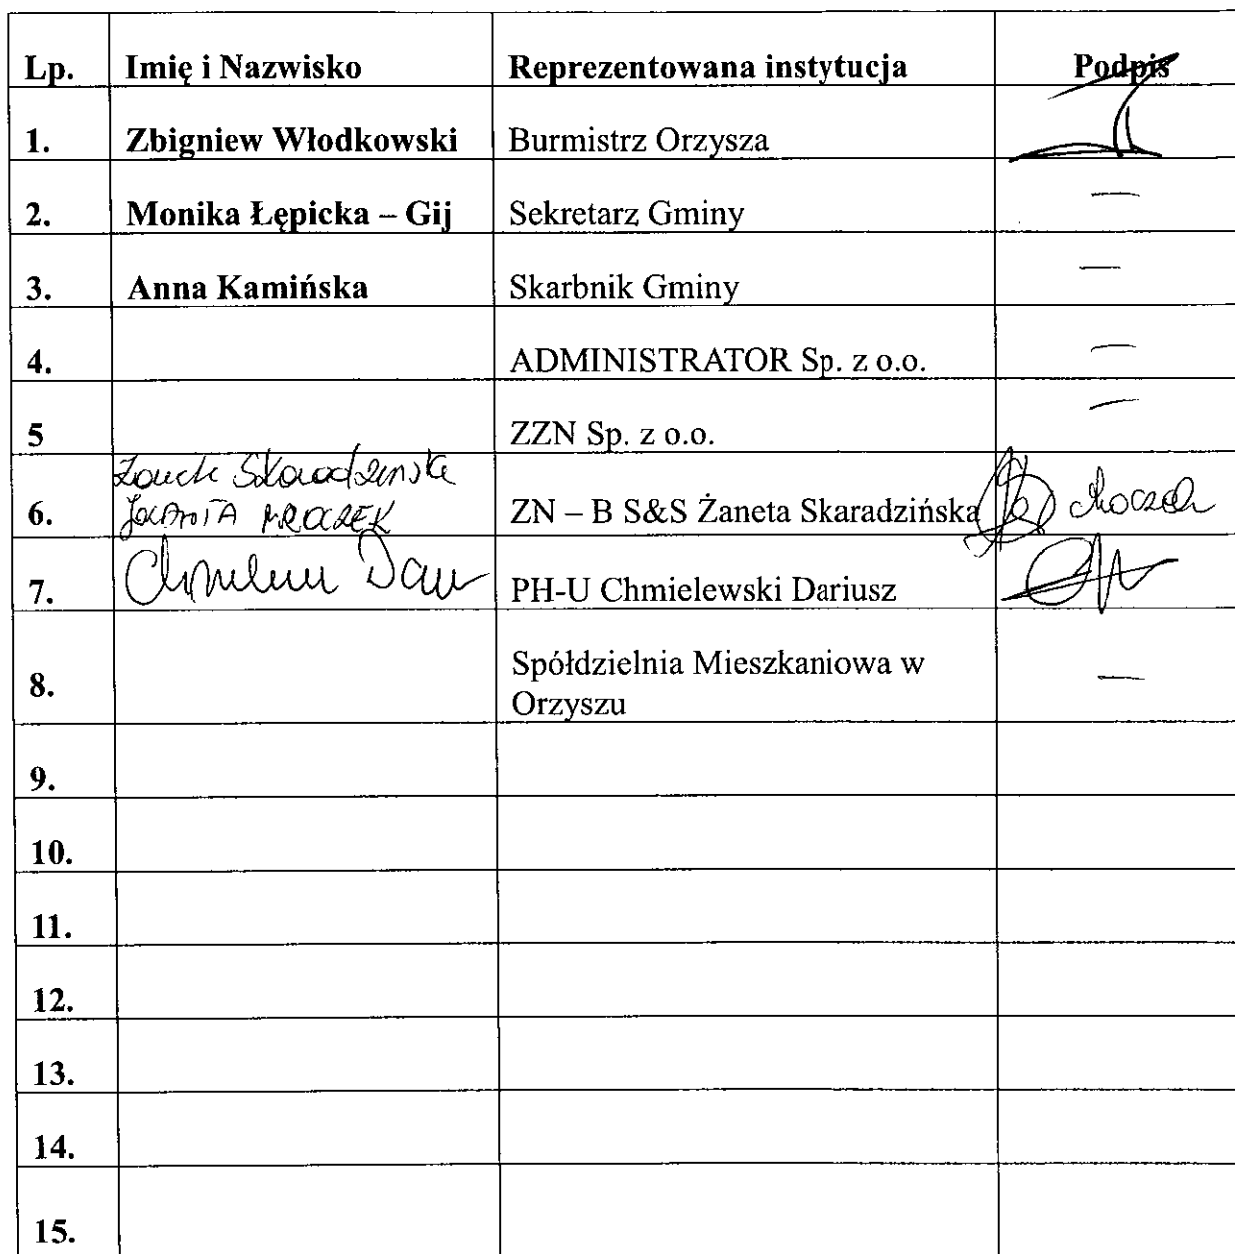 Lp. Imię i Nazwisko Reprezentowana instytucja Podpis
1. Zbigniew Włodkowski Burmistrz Orzysza
2. Monika Łępicka – Gij Sekretarz Gminy —
3. Anna Kamińska Skarbnik Gminy —
4. ADMINISTRATOR Sp. z o.o. —
5 ZZN Sp. z o.o. —
Skaradzińska
6. MROCZEK ZN – B S&S Żaneta Skaradzińska
7. PH-U Chmielewski Dariusz
8. Spółdzielnia Mieszkaniowa w —
Orzyszu
9.
10.
11.
12.
13.
14.
15.